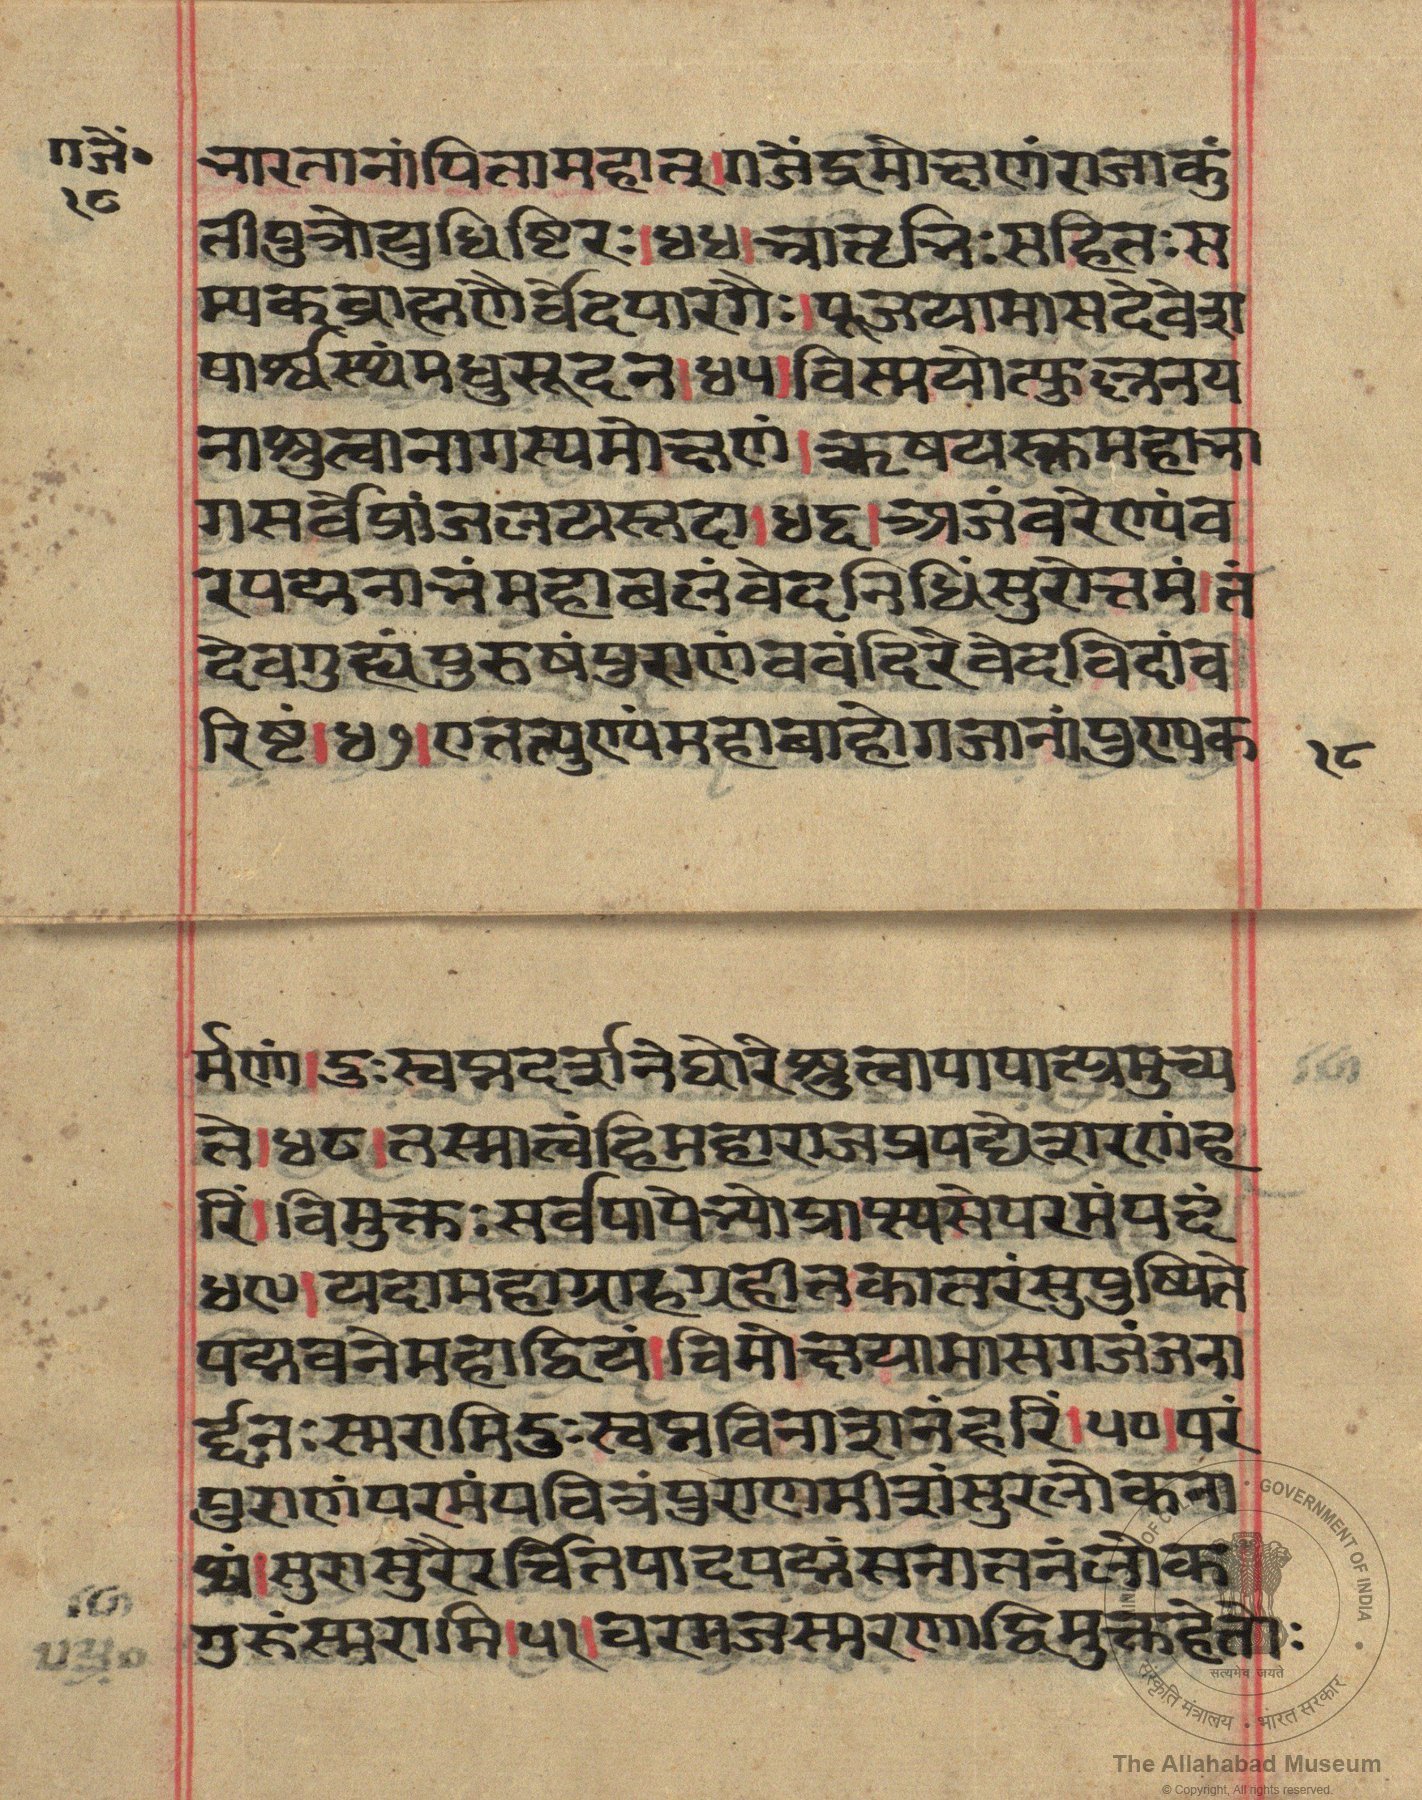 गजें॰
१८
भारतानांपितामहात्।गजेंद्रमोक्षणंराजाकुं
तीपुत्रोयुधिष्टिरः।४४।भ्रातृभिःसहितःस
म्यकब्राह्मणैर्वेदपारगैः।पूजयामासदेवेश
पार्श्वस्थंमधुसूदन।४५।विस्मयोत्फुल्लनय
नाश्रुत्वानागस्यमोक्षणं।ऋषयस्तमहाभा
गसर्वेप्रांजलयस्तदा।४६।अजंवरेण्यंव
रपद्मनाभंमहाबलंवेदनिधिंसुरोत्तमं।तं
देवगुह्यंपुरुषंपुराणंववंदिरेवेदविदांव
रिष्टं।४७।एतत्पुण्यंमहाबाहोगजानांपुण्यक
१८
र्मणां।दुःस्वप्नदर्शनेघोरेश्रुत्वापापात्प्रमुच्य
ते।४८।तस्मात्वंहिमहाराजप्रपद्येशरणंह
रिं।विमुक्तःसर्वपापेभ्योप्राप्स्यसेपरमंपदं
४९।यदामहाग्राहगृहीतकातरंसुपुष्यिते
पद्मवनेमहाद्विपं।विमोक्षयामासगजंजना
र्द्दनःस्मरामिदुःस्वप्नविनाशनंहरिं।५०।परं
पुराणंपरमंपवित्रंपुराणमीशंसुरलोकना
थं।सुरासुरैरर्चितपादपद्मंसनातनंलोक
गुरुंस्मरामि।५१।वरगजस्मरणाद्विमुक्तहेताः
MINISTRY OF CULTURE • GOVERNMENT OF INDIA •
सत्यमेव जयते
संस्कृति मंत्रालय • भारत सरकार
The Allahabad Museum
© Copyright, All rights reserved.